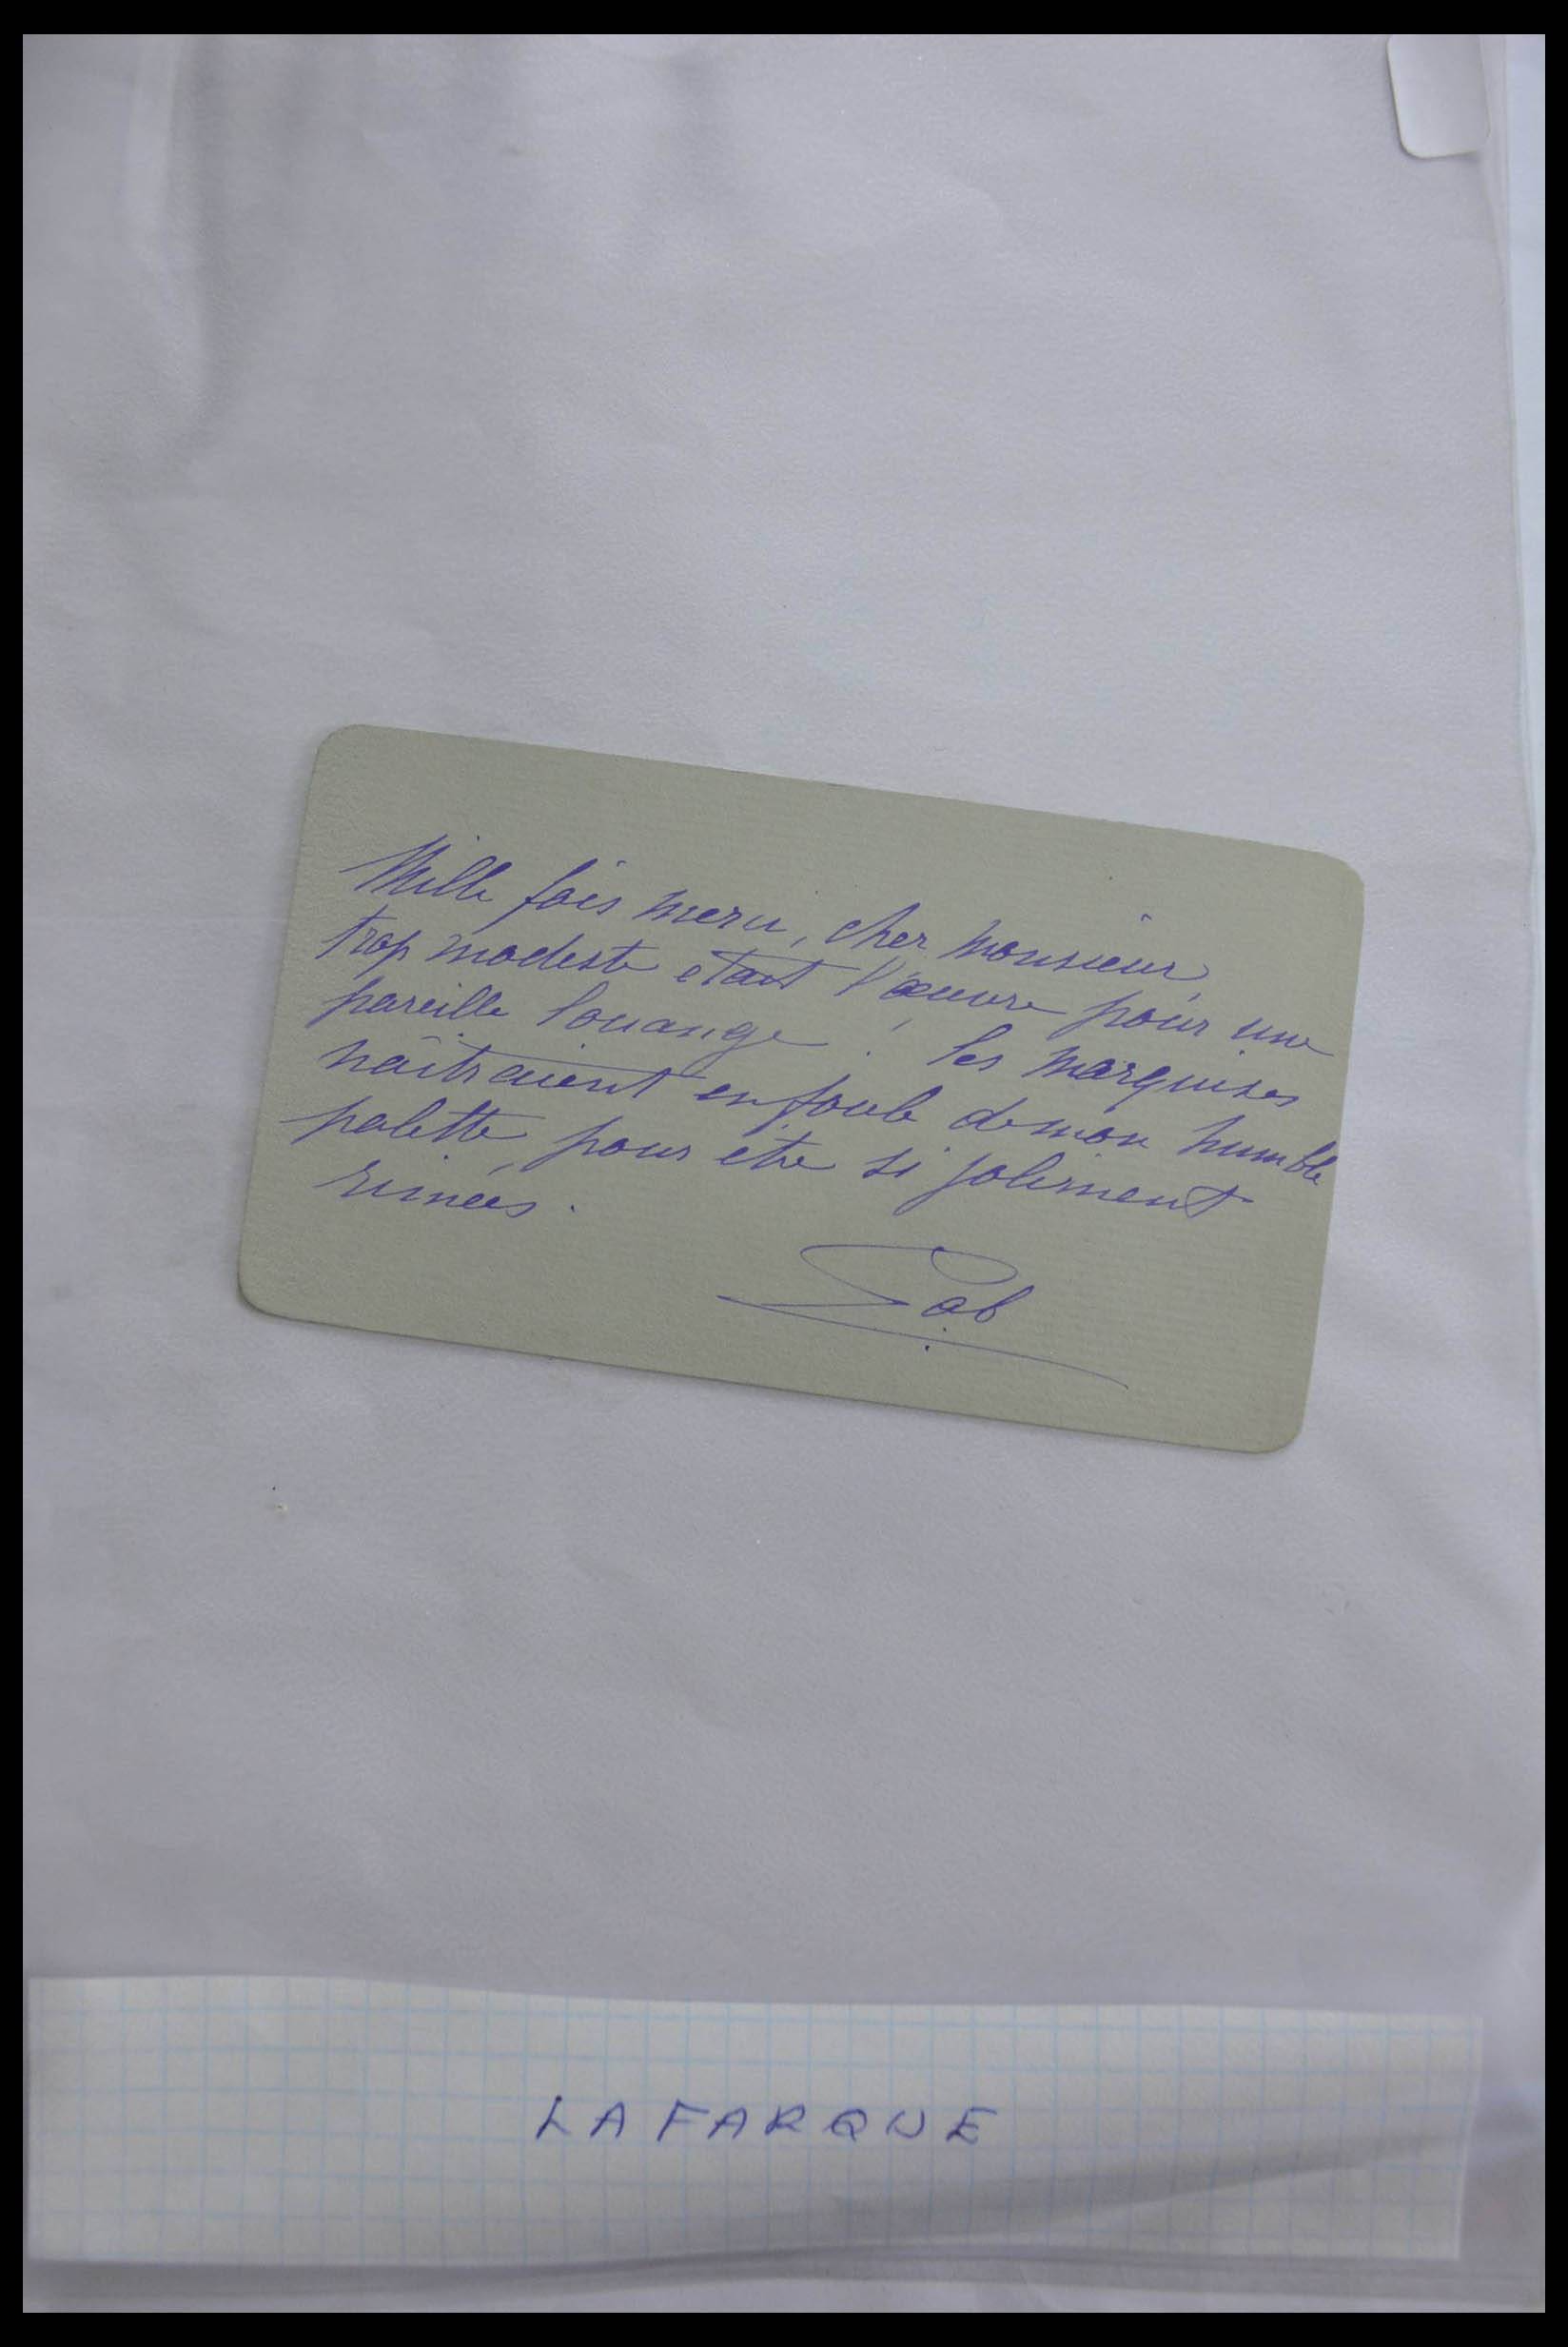 Mille fois merci, cher monsieur
trop modeste etait l'œuvre pour une
pareille louange ! les marquises
naîtraient en foule de mon humble
palette, pour être si joliment
rimées.
Gab
LAFARQUE